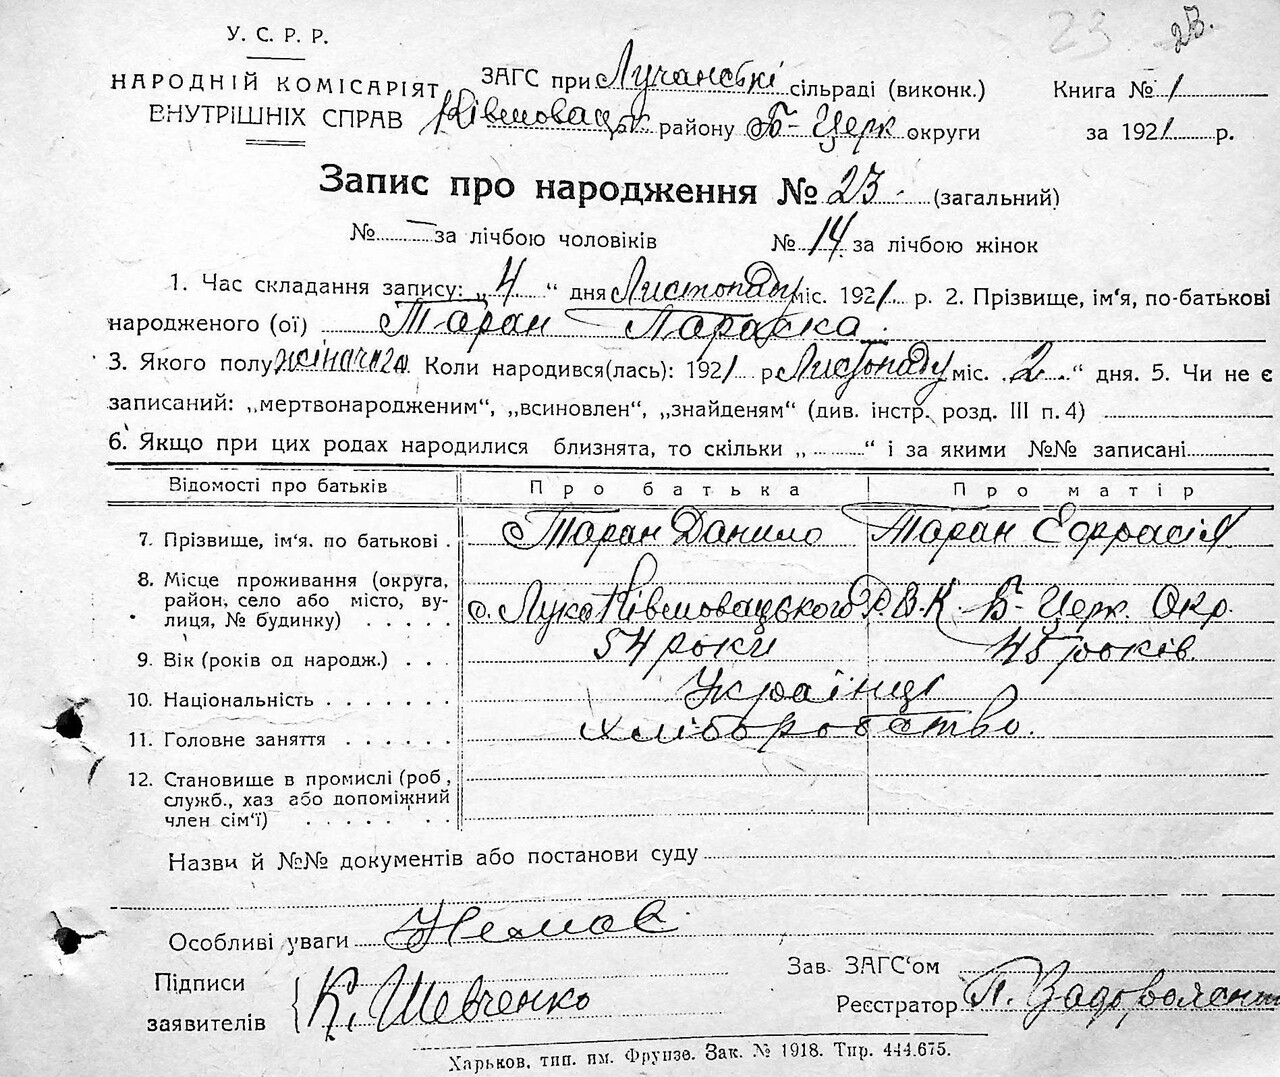 23 23.
У. С. Р. Р.
НАРОДНІЙ КОМІСАРІЯТ
ВНУТРІШНІХ СПРАВ
ЗАГС при Лучанські сільраді (виконк.)
району Б-Церк округи
Книга № 1
за 1921 р.
Запис про народження № 23 (загальний)
№ — за лічбою чоловіків № 14 за лічбою жінок
1. Час складання запису: „4“ дня Листопаду міс. 1921 р. 2. Прізвище, ім‘я, по-батькові
народженого (ої) Таран Параска.
3. Якого полу жіночого. Коли народився(лась): 1921 р Листопаду міс. „2“ дня. 5. Чи не є
записаний: „мертвонародженим“, „всиновлен“, „знайденям“ (див. інстр. розд. III п. 4)
6. Якщо при цих родах народилися близнята, то скільки „ “ і за якими №№ записані
Відомості про батьків Про батька Про матір
7. Прізвище, ім‘я. по батькові . Таран Данило Таран Ефрасія
8. Місце проживання (округа,
район, село або місто, ву-
лиця, № будинку) . . . . . с. Лука Рівшовацького Р.В.К. Б-Церк. Окр.
9. Вік (років од народж.) . . . 54 роки 45 років.
10. Національність . . . . . . . Українці
11. Головне заняття . . . . . . хліборобство.
12. Становище в промислі (роб,
служб., хаз або допоміжний
член сім‘ї) . . . . . . .
Назви й №№ документів або постанови суду
Особливі уваги Немає
Підписи
заявителів К. Шевченко
Зав. ЗАГС‘ом
Реєстратор П.
Харьков, тип. им. Фрунзе. Зак. № 1918. Тир. 444.675.